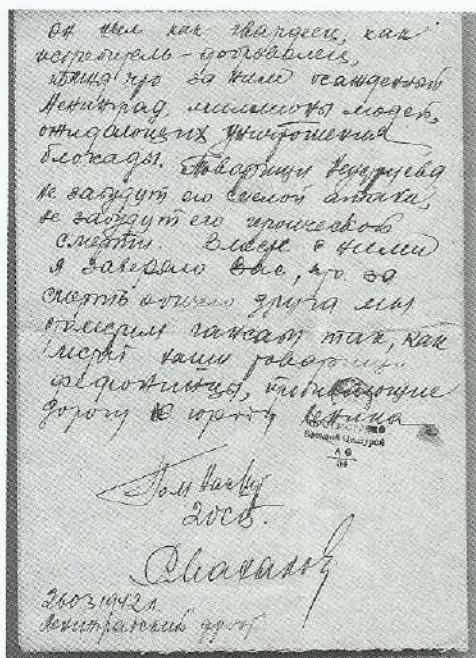 он был как гвардеец, как
истребитель – доброволец,
что за ним осажденный
Ленинград, миллионы людей,
ожидающих уничтожения
блокады. Товарищи
не забудут его смелой атаки,
не забудут его героической
смерти. Вместе с ними
я заверяю Вас, что за
смерть нашего друга мы
отомстим гансам так, как
мстят наши товарищи
фронтовики, пробивающие
дорогу к городу Ленина
Военной Цензурой
20СД.
26.03.1942 г.
Ленинградский фронт